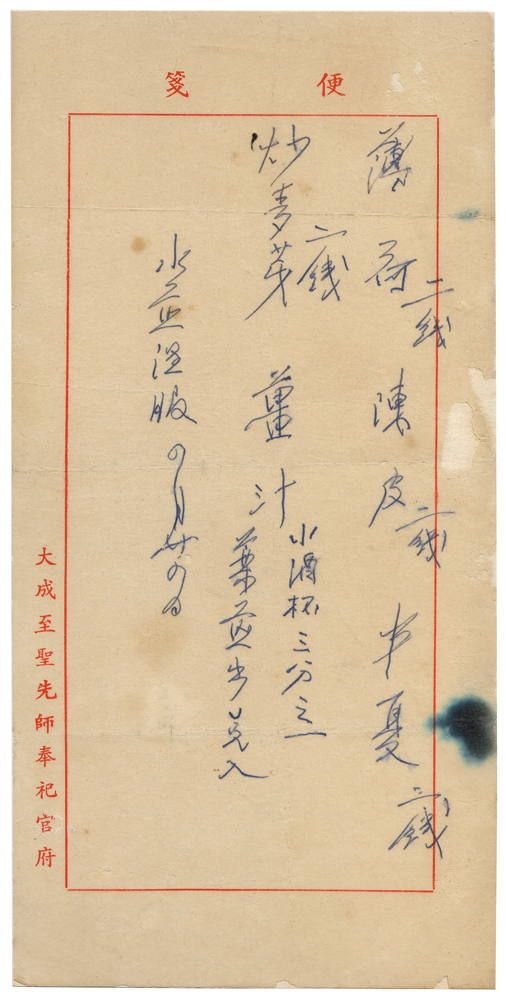 便箋
薄荷二錢 陳皮二錢 半夏三錢
炒麥芽三錢 薑汁小酒杯三分之一
藥煎出兌入
水煎温服 四月廿四日
大成至聖先師奉祀官府